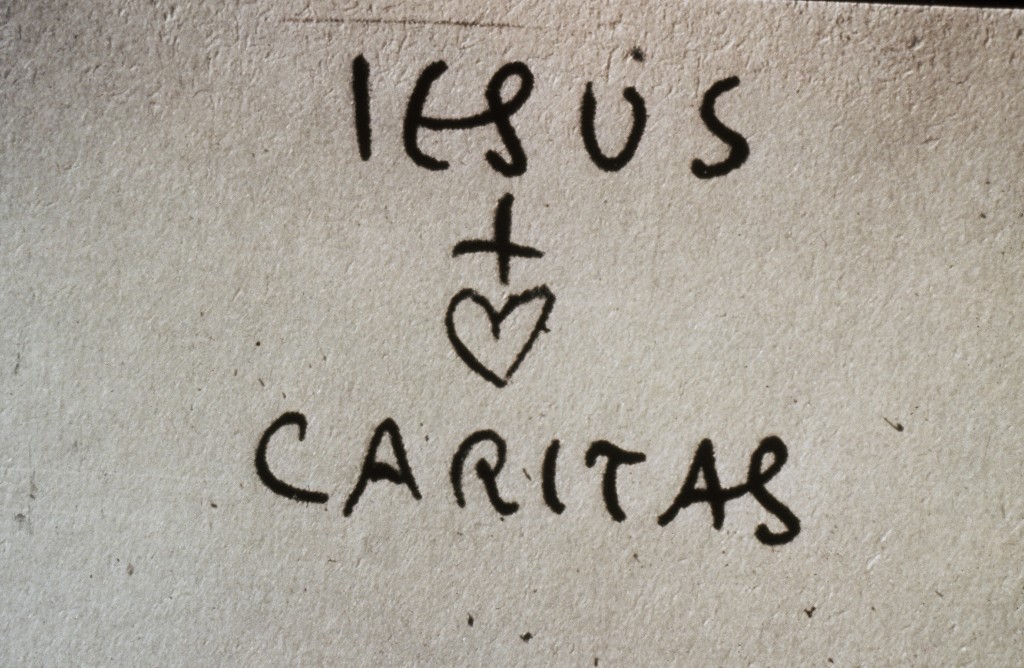 IESUS
+
♡
CARITAS